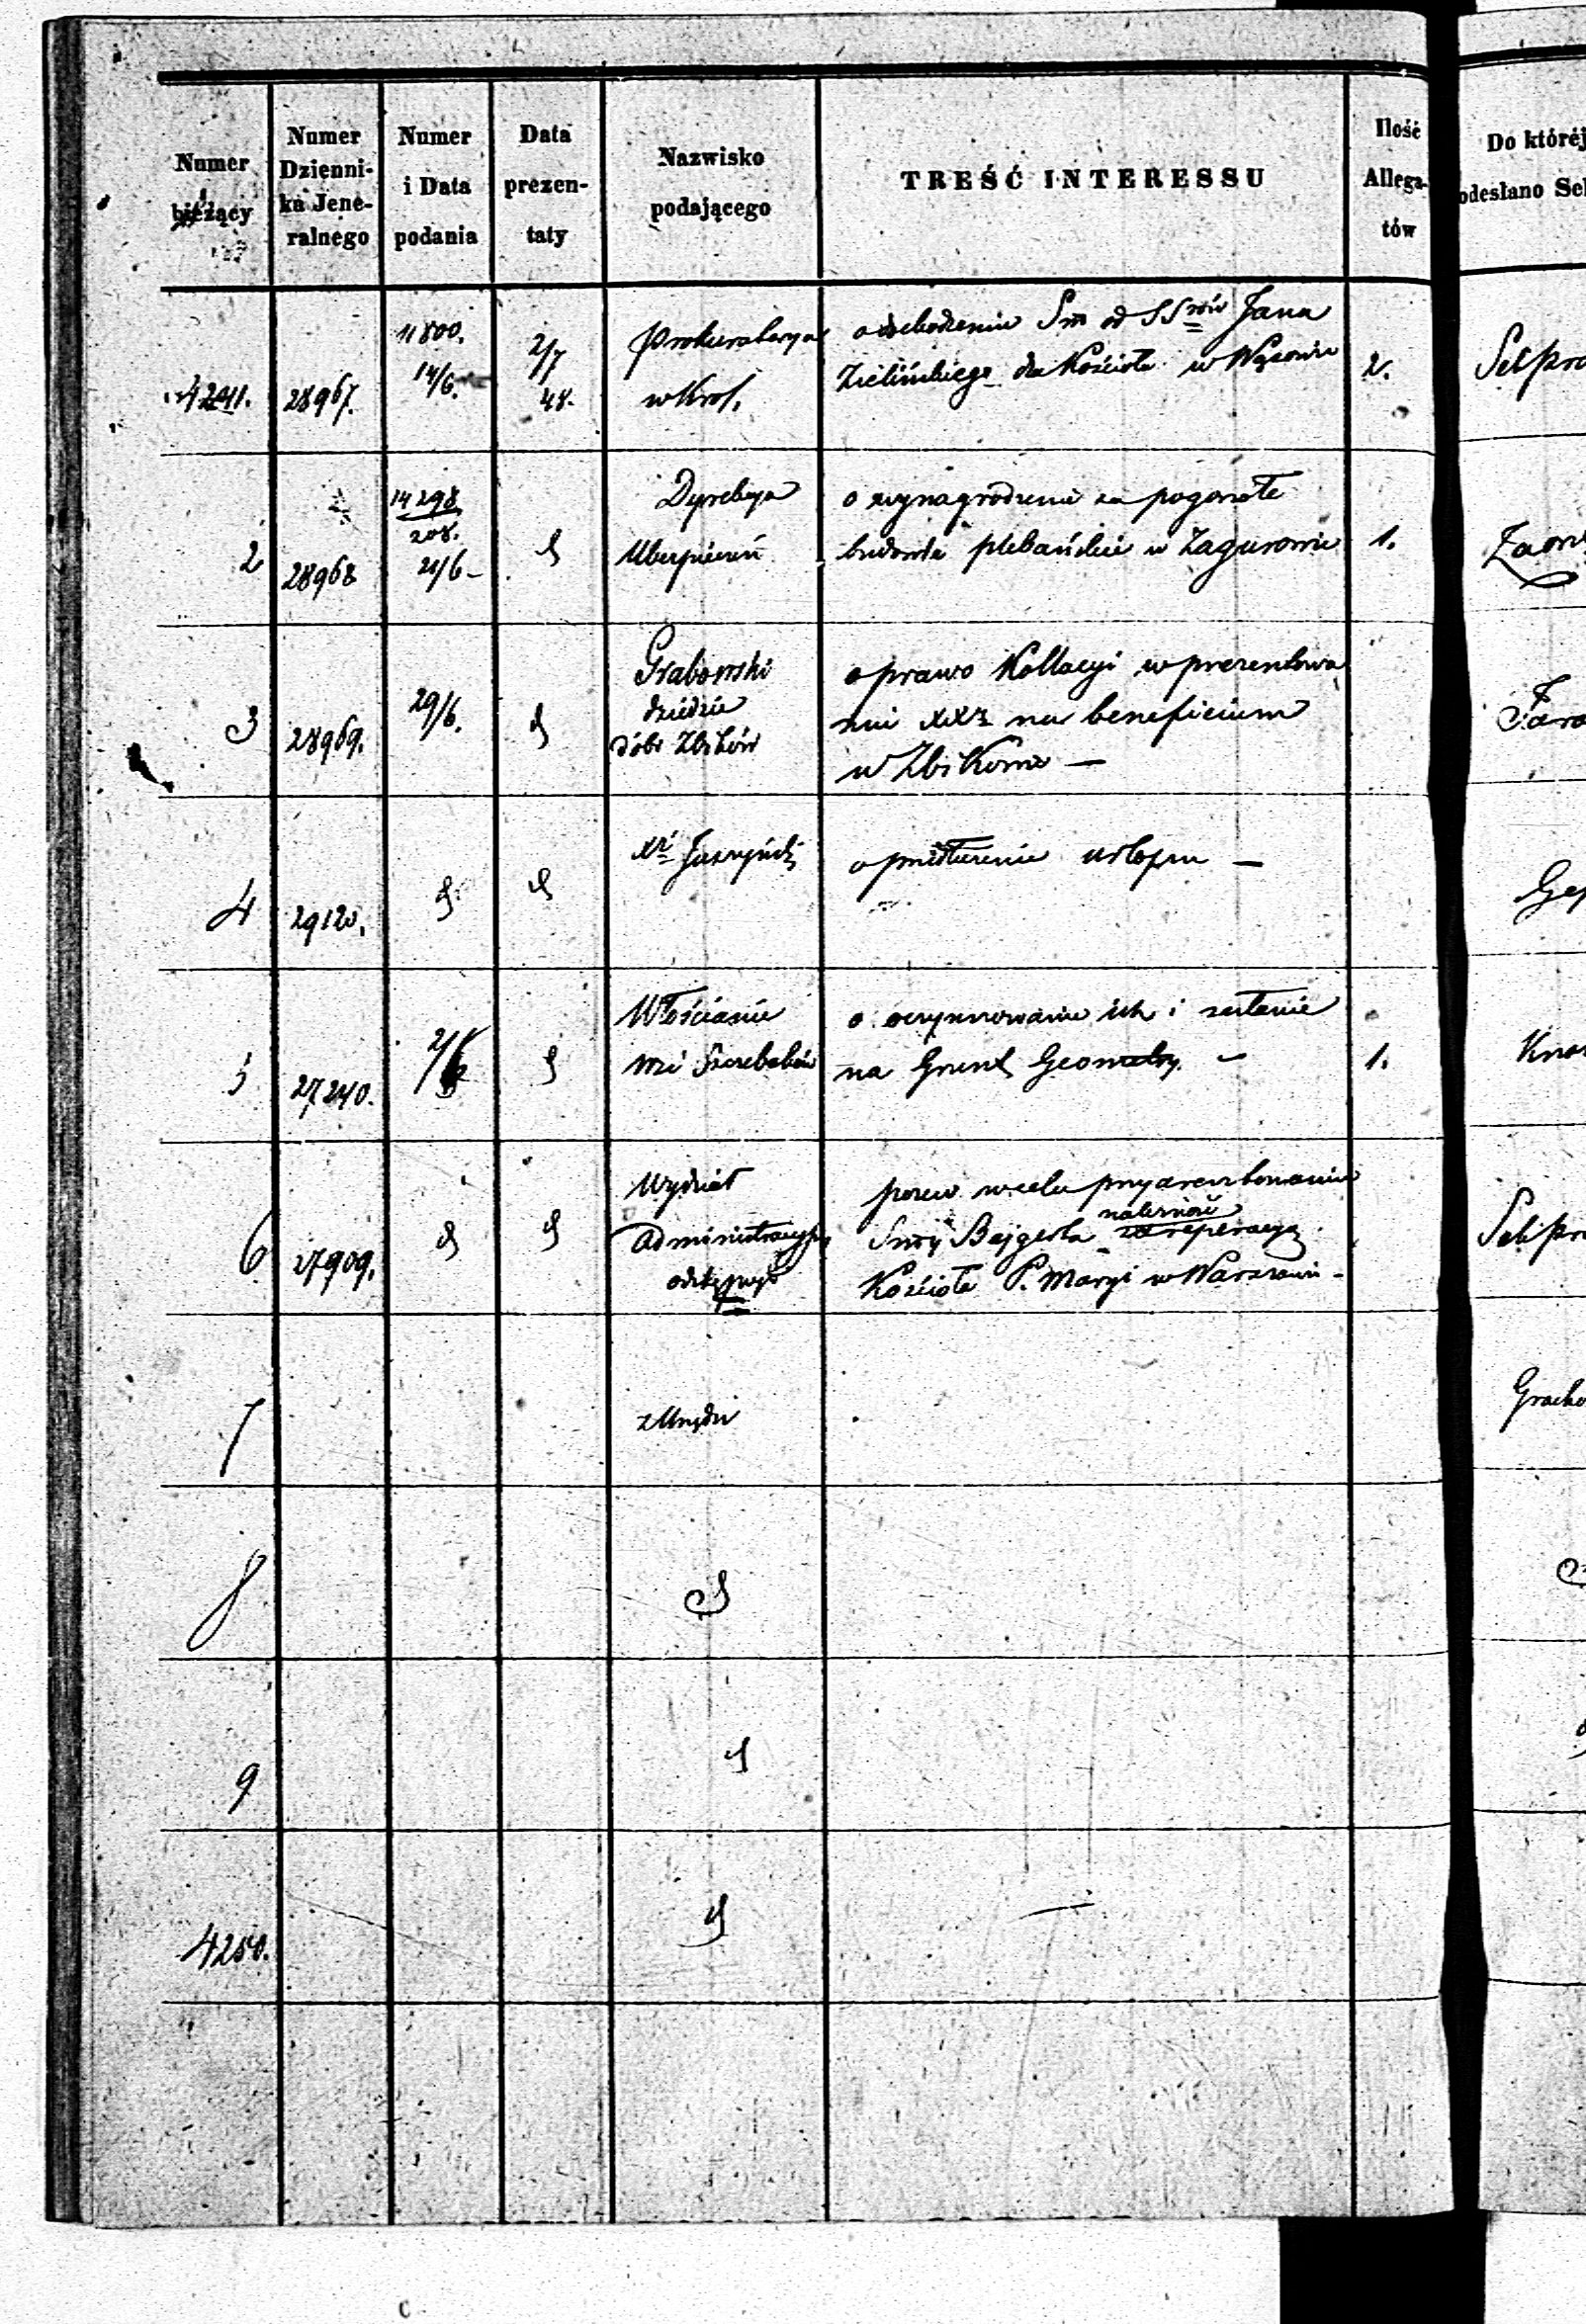 Numer bieżący
Numer Dzienni-ka Jene-ralnego
Numer i Data podania
Data prezen-taty
Nazwisko podającego
TREŚĆ INTERESSU
Ilość Allega-tów
Do któréj
odesłano Se
4241. 28967. 11800. 14/6. 2/7 48. Prokuratorya w Krol. o dochodzeniu Sm od SSrów Jana
Zielińskiego dla Kościoła w Wąsowie 2.
2 28968 14298 208. 21/6 Dyrekcya Ubezpieczeń o wynagrodzenie za pogorzałe
budowle plebańskie w Zagurowie 1.
3 28969. 29/6. Grabowski dziedzic dóbr Zbików o prawo Kollacyi w prezentowa
niu XXz na beneficium
w Zbikowie —
4 29120. o przedłużenie urlopu —
5 27240. Włościanie wsi o oczynszowanie ich i zesłanie
na Grunt Geometry. — 1.
Kno
6 27909. Wydział Administracyjny w celu przyaresztowania
Smy Bejgerta należność reperacyą
Kościoła P. Maryi w Warszawie -
7 z Urzędu
Gracho
8
9
4250.